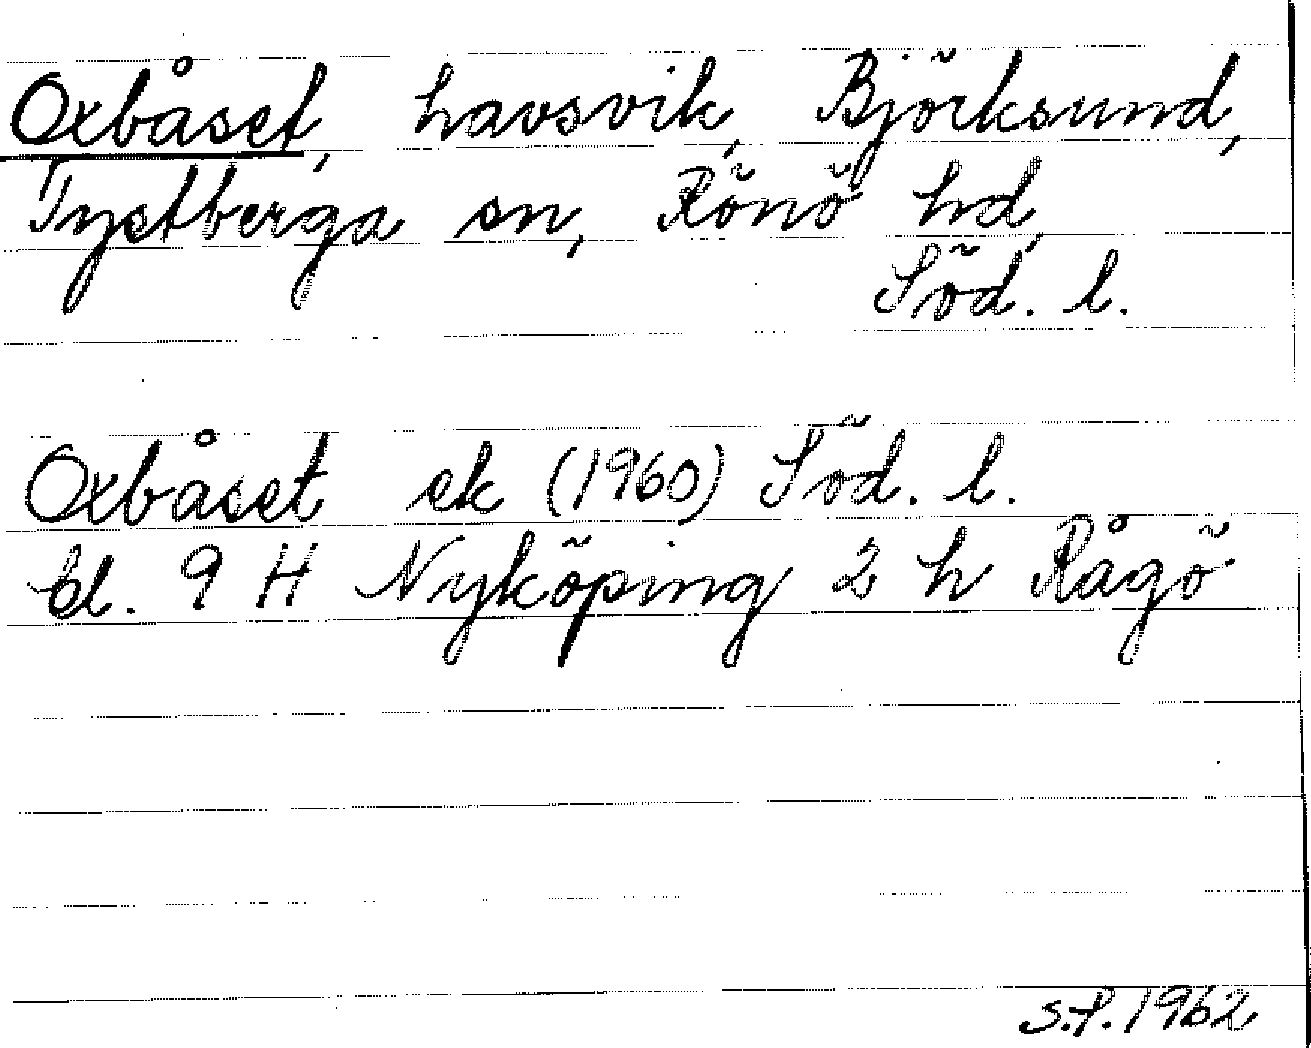 Oxbåset, havsvik, Björksund,
Tystberga sn, Rönö hd,
Söd. l.
Oxbåset ek (1960) Söd. l.
bl. 9 H Nyköping 2 h Rågö
S.f. 1962